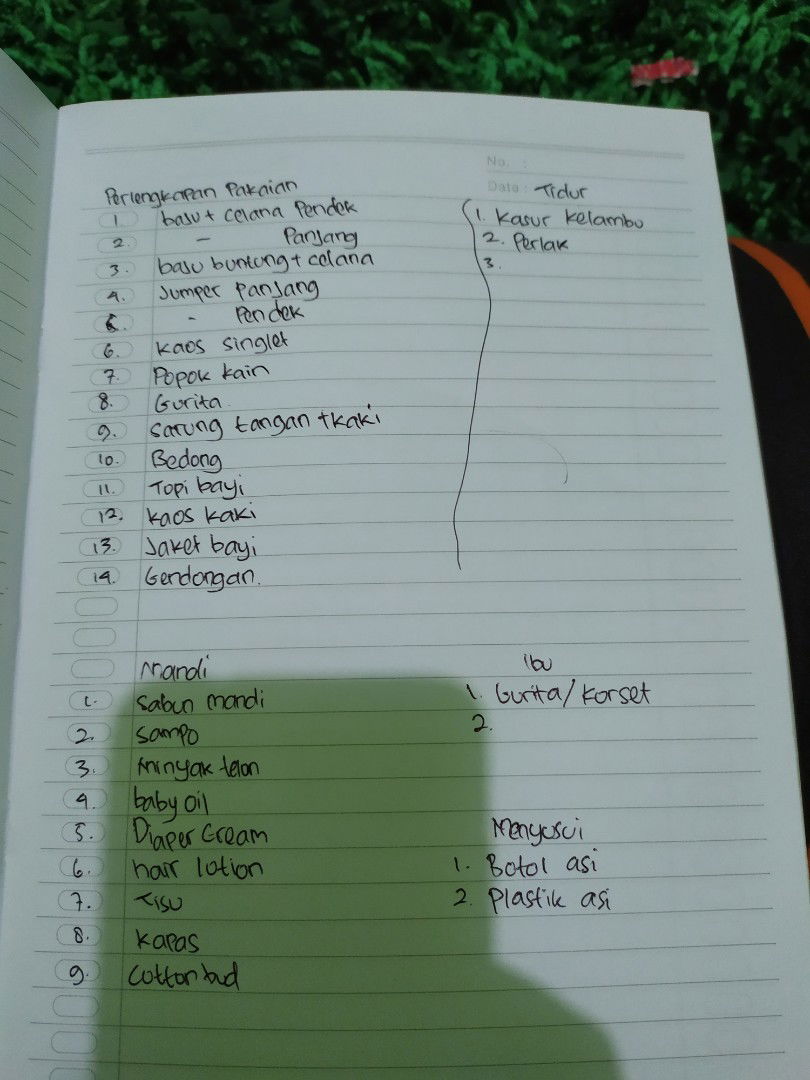 No. :
Date : Tidur
Perlengkapan Pakaian
1. baju + celana Pendek
2. - Panjang
3. baju buntung + celana
4. Jumper Panjang
5. - Pendek
6. kaos singlet
7. Popok kain
8. Gurita
9. Sarung tangan + kaki
10. Bedong
11. Topi bayi
12. kaos kaki
13. Jaket bayi
14. Gendongan.
1. Kasur Kelambu
2. Perlak
3.
Mandi
1. Sabun mandi
2. Sampo
3. Minyak telon
4. baby oil
5. Diaper Cream
6. hair lotion
7. Tisu
8. Kapas
9. Cotton bud
ibu
1. Gurita / Korset
2.
Menyusui
1. Botol asi
2. Plastik asi